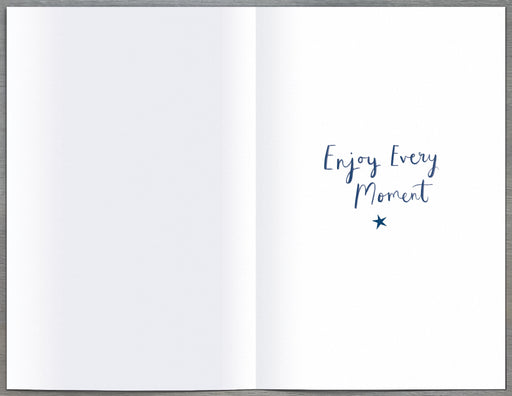 Enjoy Every
Moment